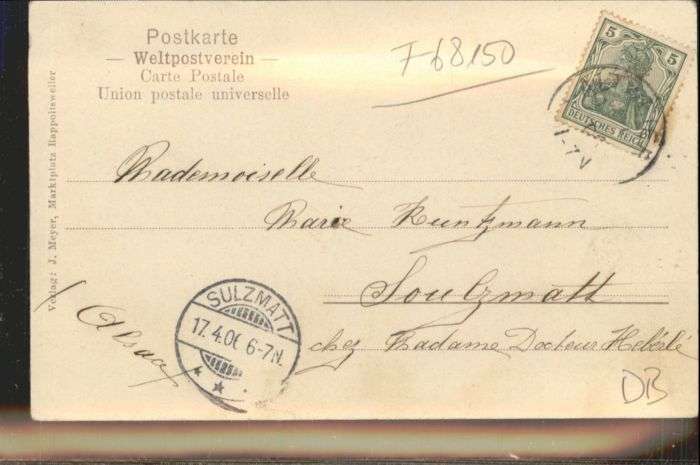 Postkarte
— Weltpostverein —
Carte Postale
Union postale universelle
F 68150
5 5
DEUTSCHES REICH
1-7 V
Mademoiselle
Marie Kuntzmann
Soulzmatt
chez Madame Docteur Heberlé
(Alsace)
SULZMATT
17.4.06 6-7N.
DB
Verlag: J. Meyer, Marktplatz Rappoltsweiler